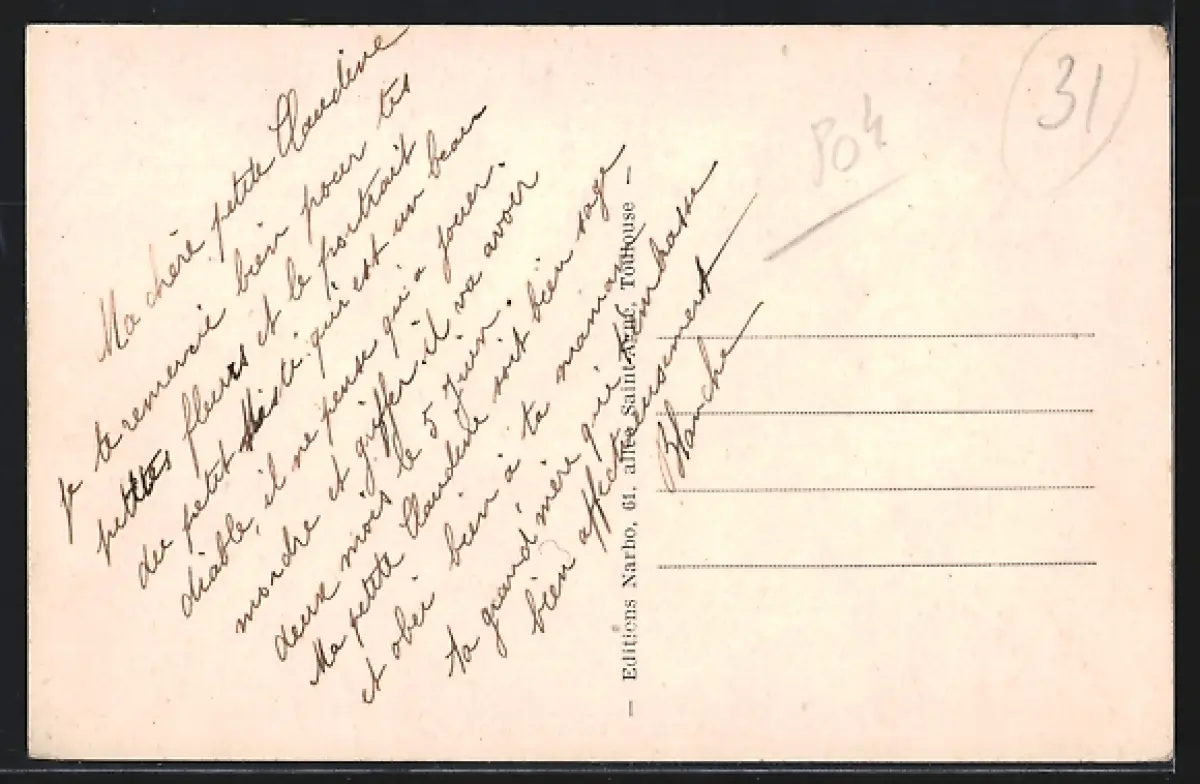 Ma chère petite Claudine
Je te remercie bien pour tes
petites fleurs et le portrait
du petit qui est un beau
diable, il ne pense qu'a jouer.
mordre et griffer. il va avoir
deux mois le 5 Juin.
Ma petite Claudine soit bien sage
et obei bien à ta maman
ta grand'mère qui t'embrasse
bien affectueusement
Blanche
— Editions Narbo, 61, allée Saint-Agne, Toulouse —
504
31